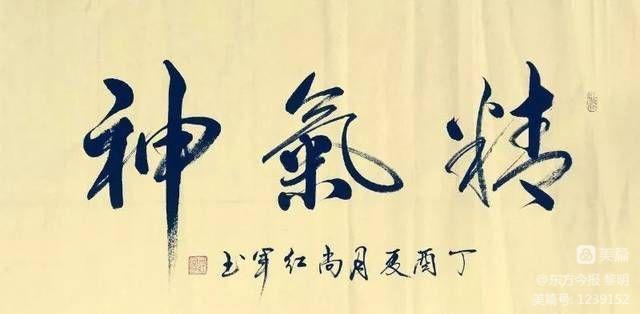 精氣神
丁酉夏月尚红军书
美篇
@东方今报 黎明
美篇号: 1239152